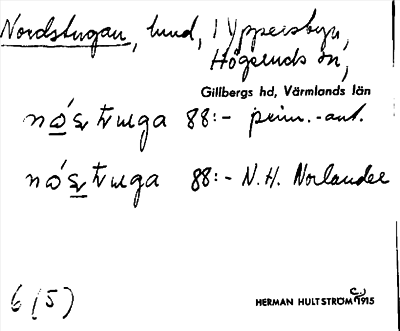 Nordstugan, lund, i Yppersbyn,
Högsunds sn,
Gillbergs hd, Värmlands län
88:- prim.-ant.
88:- N.H. Norlander
6 (5)
HERMAN HULTSTRÖM 1915